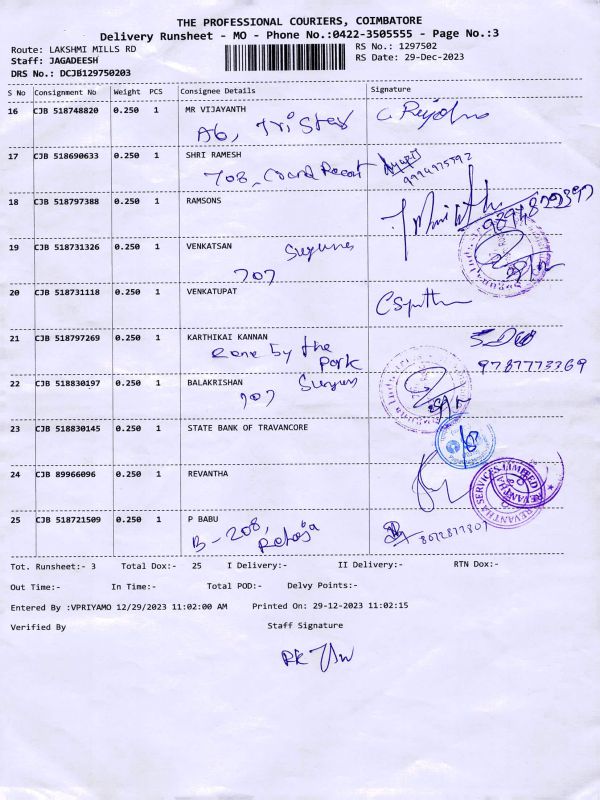 THE PROFESSIONAL COURIERS, COIMBATORE
Delivery Runsheet - MO - Phone No.:0422-3505555 - Page No.:3
Route: LAKSHMI MILLS RD
RS No.: 1297502
Staff: JAGADEESH
RS Date: 29-Dec-2023
DRS No.: DCJB129750203
S No Consignment No Weight PCS Consignee Details Signature
16 CJB 518748820 0.250 1 MR VIJAYANTH
A6, Tristar
17 CJB 518690633 0.250 1 SHRI RAMESH
708, Grand
18 CJB 518797388 0.250 1 RAMSONS
9894872397
19 CJB 518731326 0.250 1 VENKATSAN
707
20 CJB 518731118 0.250 1 VENKATUPAT
21 CJB 518797269 0.250 1 KARTHIKAI KANNAN
by the
Park
9787773769
22 CJB 518830197 0.250 1 BALAKRISHAN
707
23 CJB 518830145 0.250 1 STATE BANK OF TRAVANCORE
24 CJB 89966096 0.250 1 REVANTHA
REVANTHA SERVICES LIMITED
25 CJB 518721509 0.250 1 P BABU
B-208,
Tot. Runsheet:- 3 Total Dox:- 25 I Delivery:- II Delivery:- RTN Dox:-
Out Time:- In Time:- Total POD:- Delvy Points:-
Entered By :VPRIYAMO 12/29/2023 11:02:00 AM Printed On: 29-12-2023 11:02:15
Verified By Staff Signature